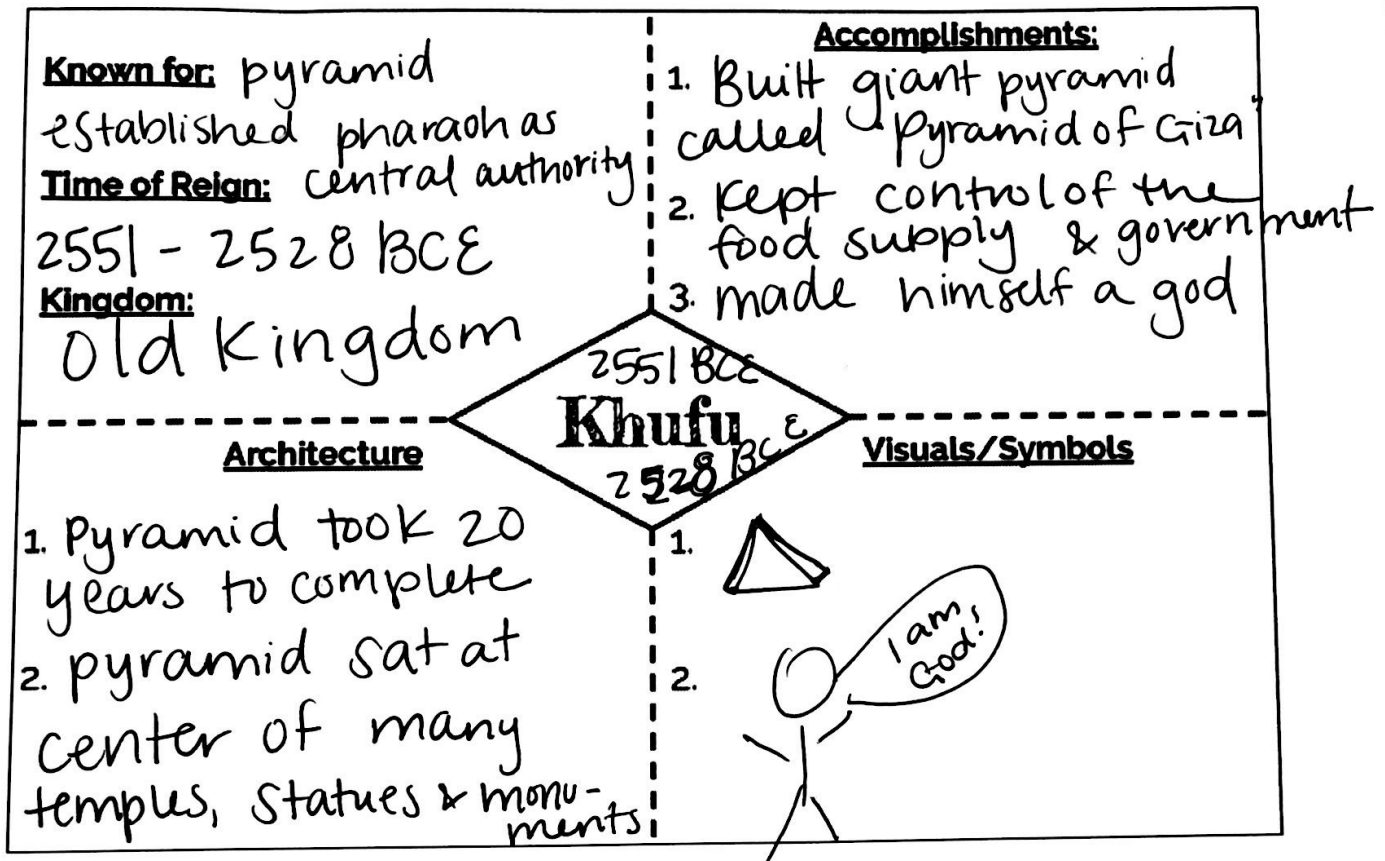 Known for: pyramid
established pharaoh as
central authority
Time of Reign:
2551 - 2528 BCE
Kingdom:
Old Kingdom
Accomplishments:
1. Built giant pyramid
called "Pyramid of Giza"
2. Kept control of the
food supply & government
3. made himself a god
2551 BCE
Khufu
2528 BCE
Architecture
1. Pyramid took 20
years to complete
2. pyramid sat at
center of many
temples, statues & monu-
ments
Visuals/Symbols
1.
2.
I am
God!